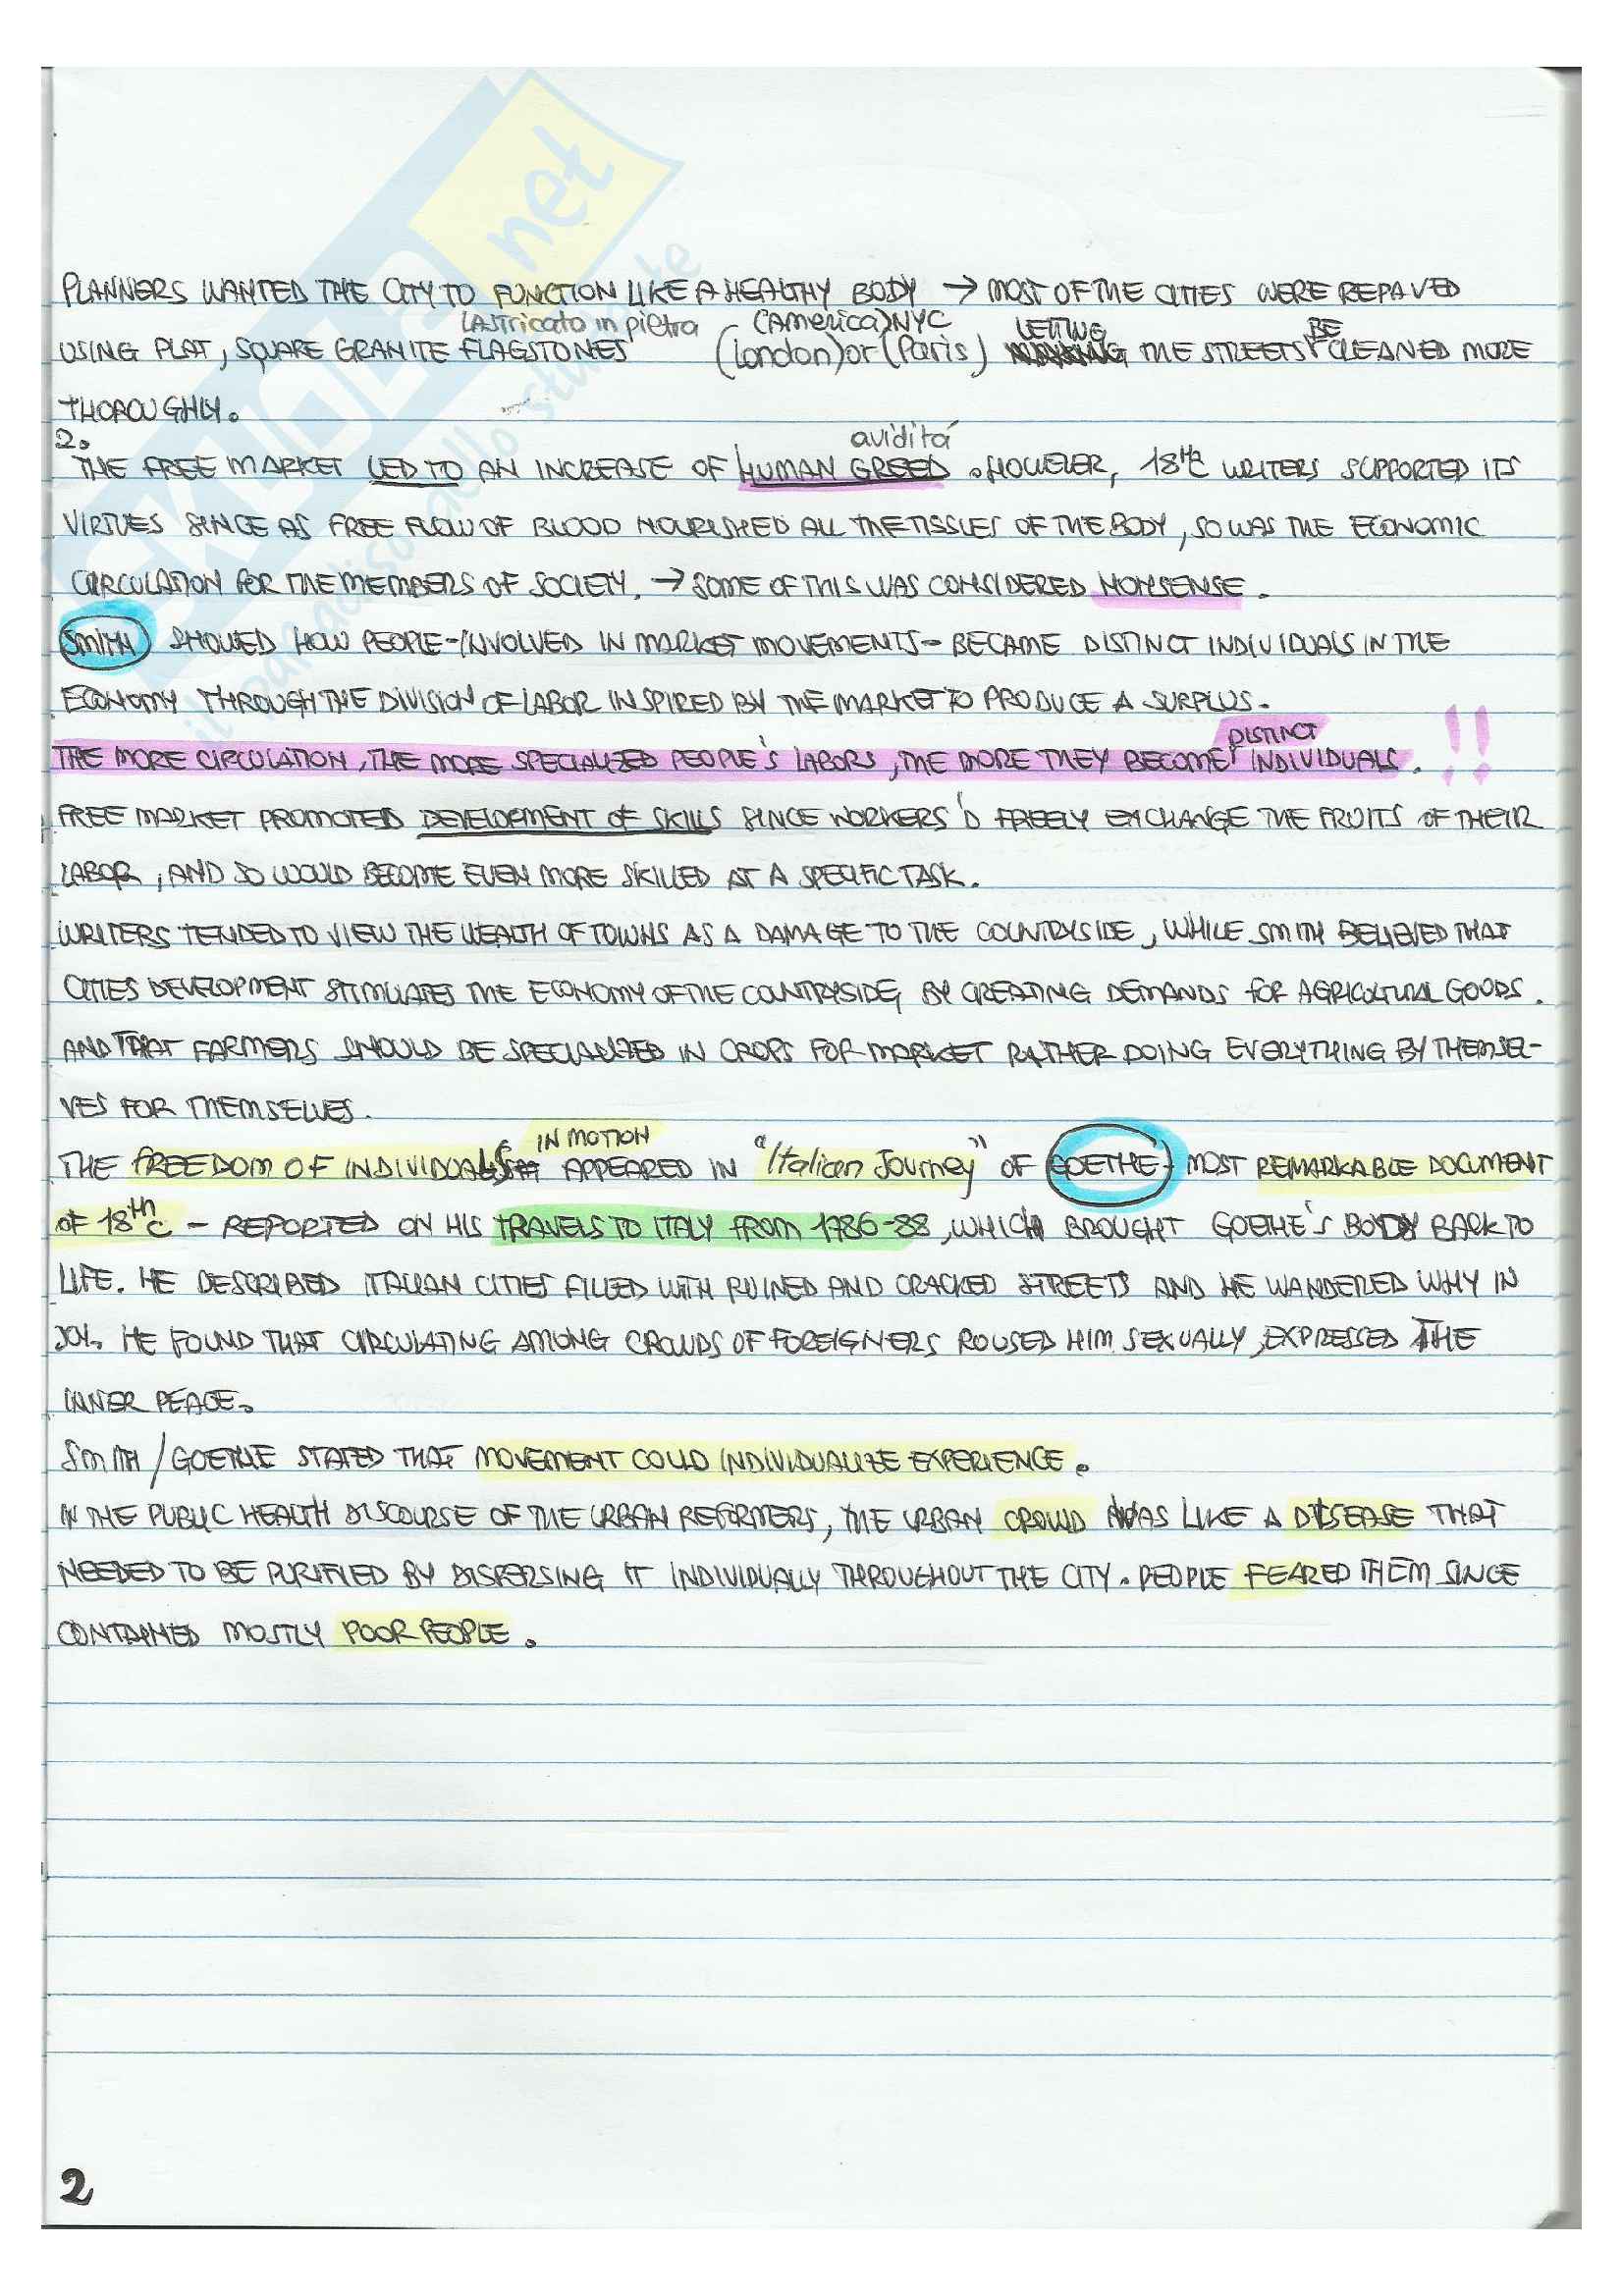 SKUOLA.net
il paradiso dello studente
PLANNERS WANTED THE CITY TO FUNCTION LIKE A HEALTHY BODY → MOST OF THE CITIES WERE REPAVED
LASTricato in pietra (America) NYC LETTING BE
USING PLAT, SQUARE GRANITE FLAGSTONES (London) or (Paris) THE STREETS CLEANED MORE
THOROUGHLY.
2. avidità
THE FREE MARKET LED TO AN INCREASE OF HUMAN GREED. HOWEVER, 18th C WRITERS SUPPORTED ITS
VIRTUES SINCE AS FREE FLOW OF BLOOD NOURISHED ALL THE TISSUES OF THE BODY, SO WAS THE ECONOMIC
CIRCULATION FOR THE MEMBERS OF SOCIETY. → SOME OF THIS WAS CONSIDERED NONSENSE.
SMITH SHOWED HOW PEOPLE - INVOLVED IN MARKET MOVEMENTS - BECAME DISTINCT INDIVIDUALS IN THE
ECONOMY THROUGH THE DIVISION OF LABOR INSPIRED BY THE MARKET TO PRODUCE A SURPLUS.
DISTINCT
THE MORE CIRCULATION, THE MORE SPECIALIZED PEOPLE'S LABORS, THE MORE THEY BECOME INDIVIDUALS. !!
FREE MARKET PROMOTED DEVELOPMENT OF SKILLS SINCE WORKERS'D FREELY EXCHANGE THE FRUITS OF THEIR
LABOR, AND SO WOULD BECOME EVEN MORE SKILLED AT A SPECIFIC TASK.
WRITERS TENDED TO VIEW THE WEALTH OF TOWNS AS A DAMAGE TO THE COUNTRYSIDE, WHILE SMITH BELIEVED THAT
CITIES DEVELOPMENT STIMULATES THE ECONOMY OF THE COUNTRYSIDE, BY CREATING DEMANDS FOR AGRICOLTURAL GOODS.
AND THAT FARMERS SHOULD BE SPECIALIZED IN CROPS FOR MARKET RATHER DOING EVERYTHING BY THEMSEL-
VES FOR THEMSELVES.
IN MOTION
THE FREEDOM OF INDIVIDUALS APPEARED IN "Italian Journey" OF GOETHE - MOST REMARKABLE DOCUMENT
OF 18th C - REPORTED ON HIS TRAVELS TO ITALY FROM 1786-88, WHICH BROUGHT GOETHE'S BODY BACK TO
LIFE. HE DESCRIBED ITALIAN CITIES FILLED WITH RUINED AND CRACKED STREETS AND HE WANDERED WHY IN
JOY. HE FOUND THAT CIRCULATING AMONG CROWDS OF FOREIGNERS ROUSED HIM SEXUALLY, EXPRESSED THE
INNER PEACE.
SMITH / GOETHE STATED THAT MOVEMENT COULD INDIVIDUALIZE EXPERIENCE.
IN THE PUBLIC HEALTH DISCOURSE OF THE URBAN REFORMERS, THE URBAN CROWD WAS LIKE A DISEASE THAT
NEEDED TO BE PURIFIED BY DISPERSING IT INDIVIDUALLY THROUGHOUT THE CITY. PEOPLE FEARED THEM SINCE
CONTAINED MOSTLY POOR PEOPLE.
2